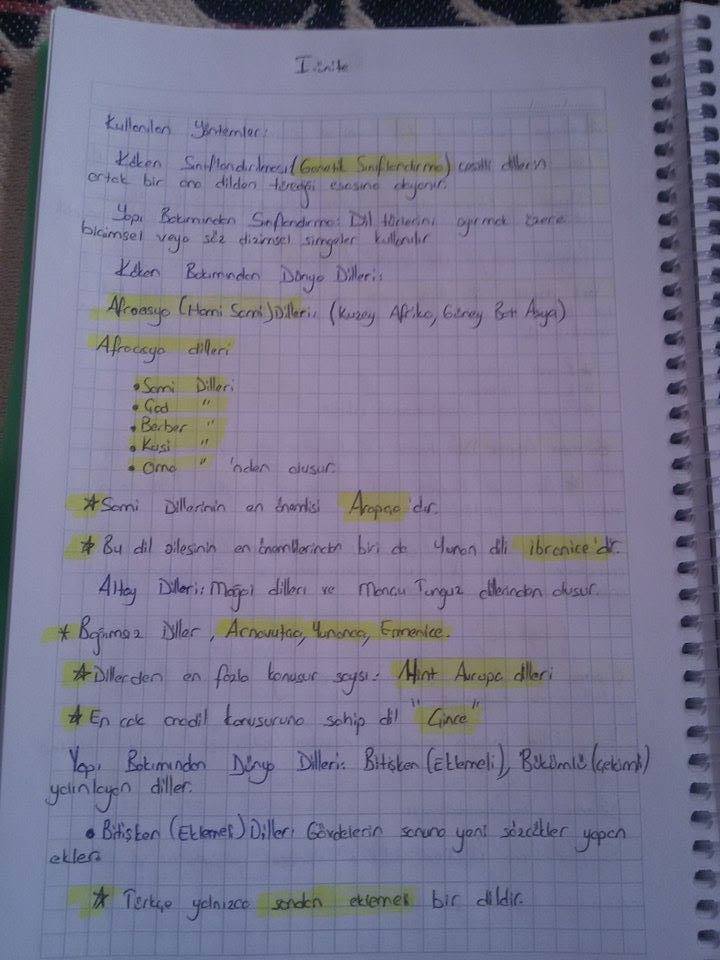 I ünite
Kullanılan Yöntemler:
Köken Sınıflandırılması (Genetik Sınıflandırma) çeşitli dillerin
ortak bir ana dilden türediği esasına dayanır.
Yapı Bakımından Sınıflandırma: Dil türlerini ayırmak üzere
biçimsel veya söz dizimsel simgeler kullanılır
Köken Bakımından Dünya Dilleri:
Afroasya (Hami Sami) Dilleri: (Kuzey Afrika, Güney Batı Asya)
Afroasya dilleri
• Sami Dilleri
• Çad "
• Berber "
• Kuşi "
• Omo " 'nden oluşur.
☆ Sami Dillerinin en önemlisi Arapça'dır.
☆ Bu dil ailesinin en önemlilerinden biri de Yunan dili ibranice'dir.
Altay Dilleri: Moğol dilleri ve Mancu Tunguz dillerinden oluşur.
* Bağımsız Diller, Arnavutça, Yunanca, Ermenice.
☆ Dillerden en fazla konuşur sayısı: Hint Avrupa dilleri
☆ En çok anadil konuşuruna sahip dil "Çince"
Yapı Bakımından Dünya Dilleri: Bitişken (Eklemeli), Bükümlü (çekimli)
yalınlayan diller.
• Bitişken (Eklemeli) Diller: Gövdelerin sonuna yeni sözcükler yapan
ekler.
☆ Türkçe yalnızca sondan eklemeli bir dildir.